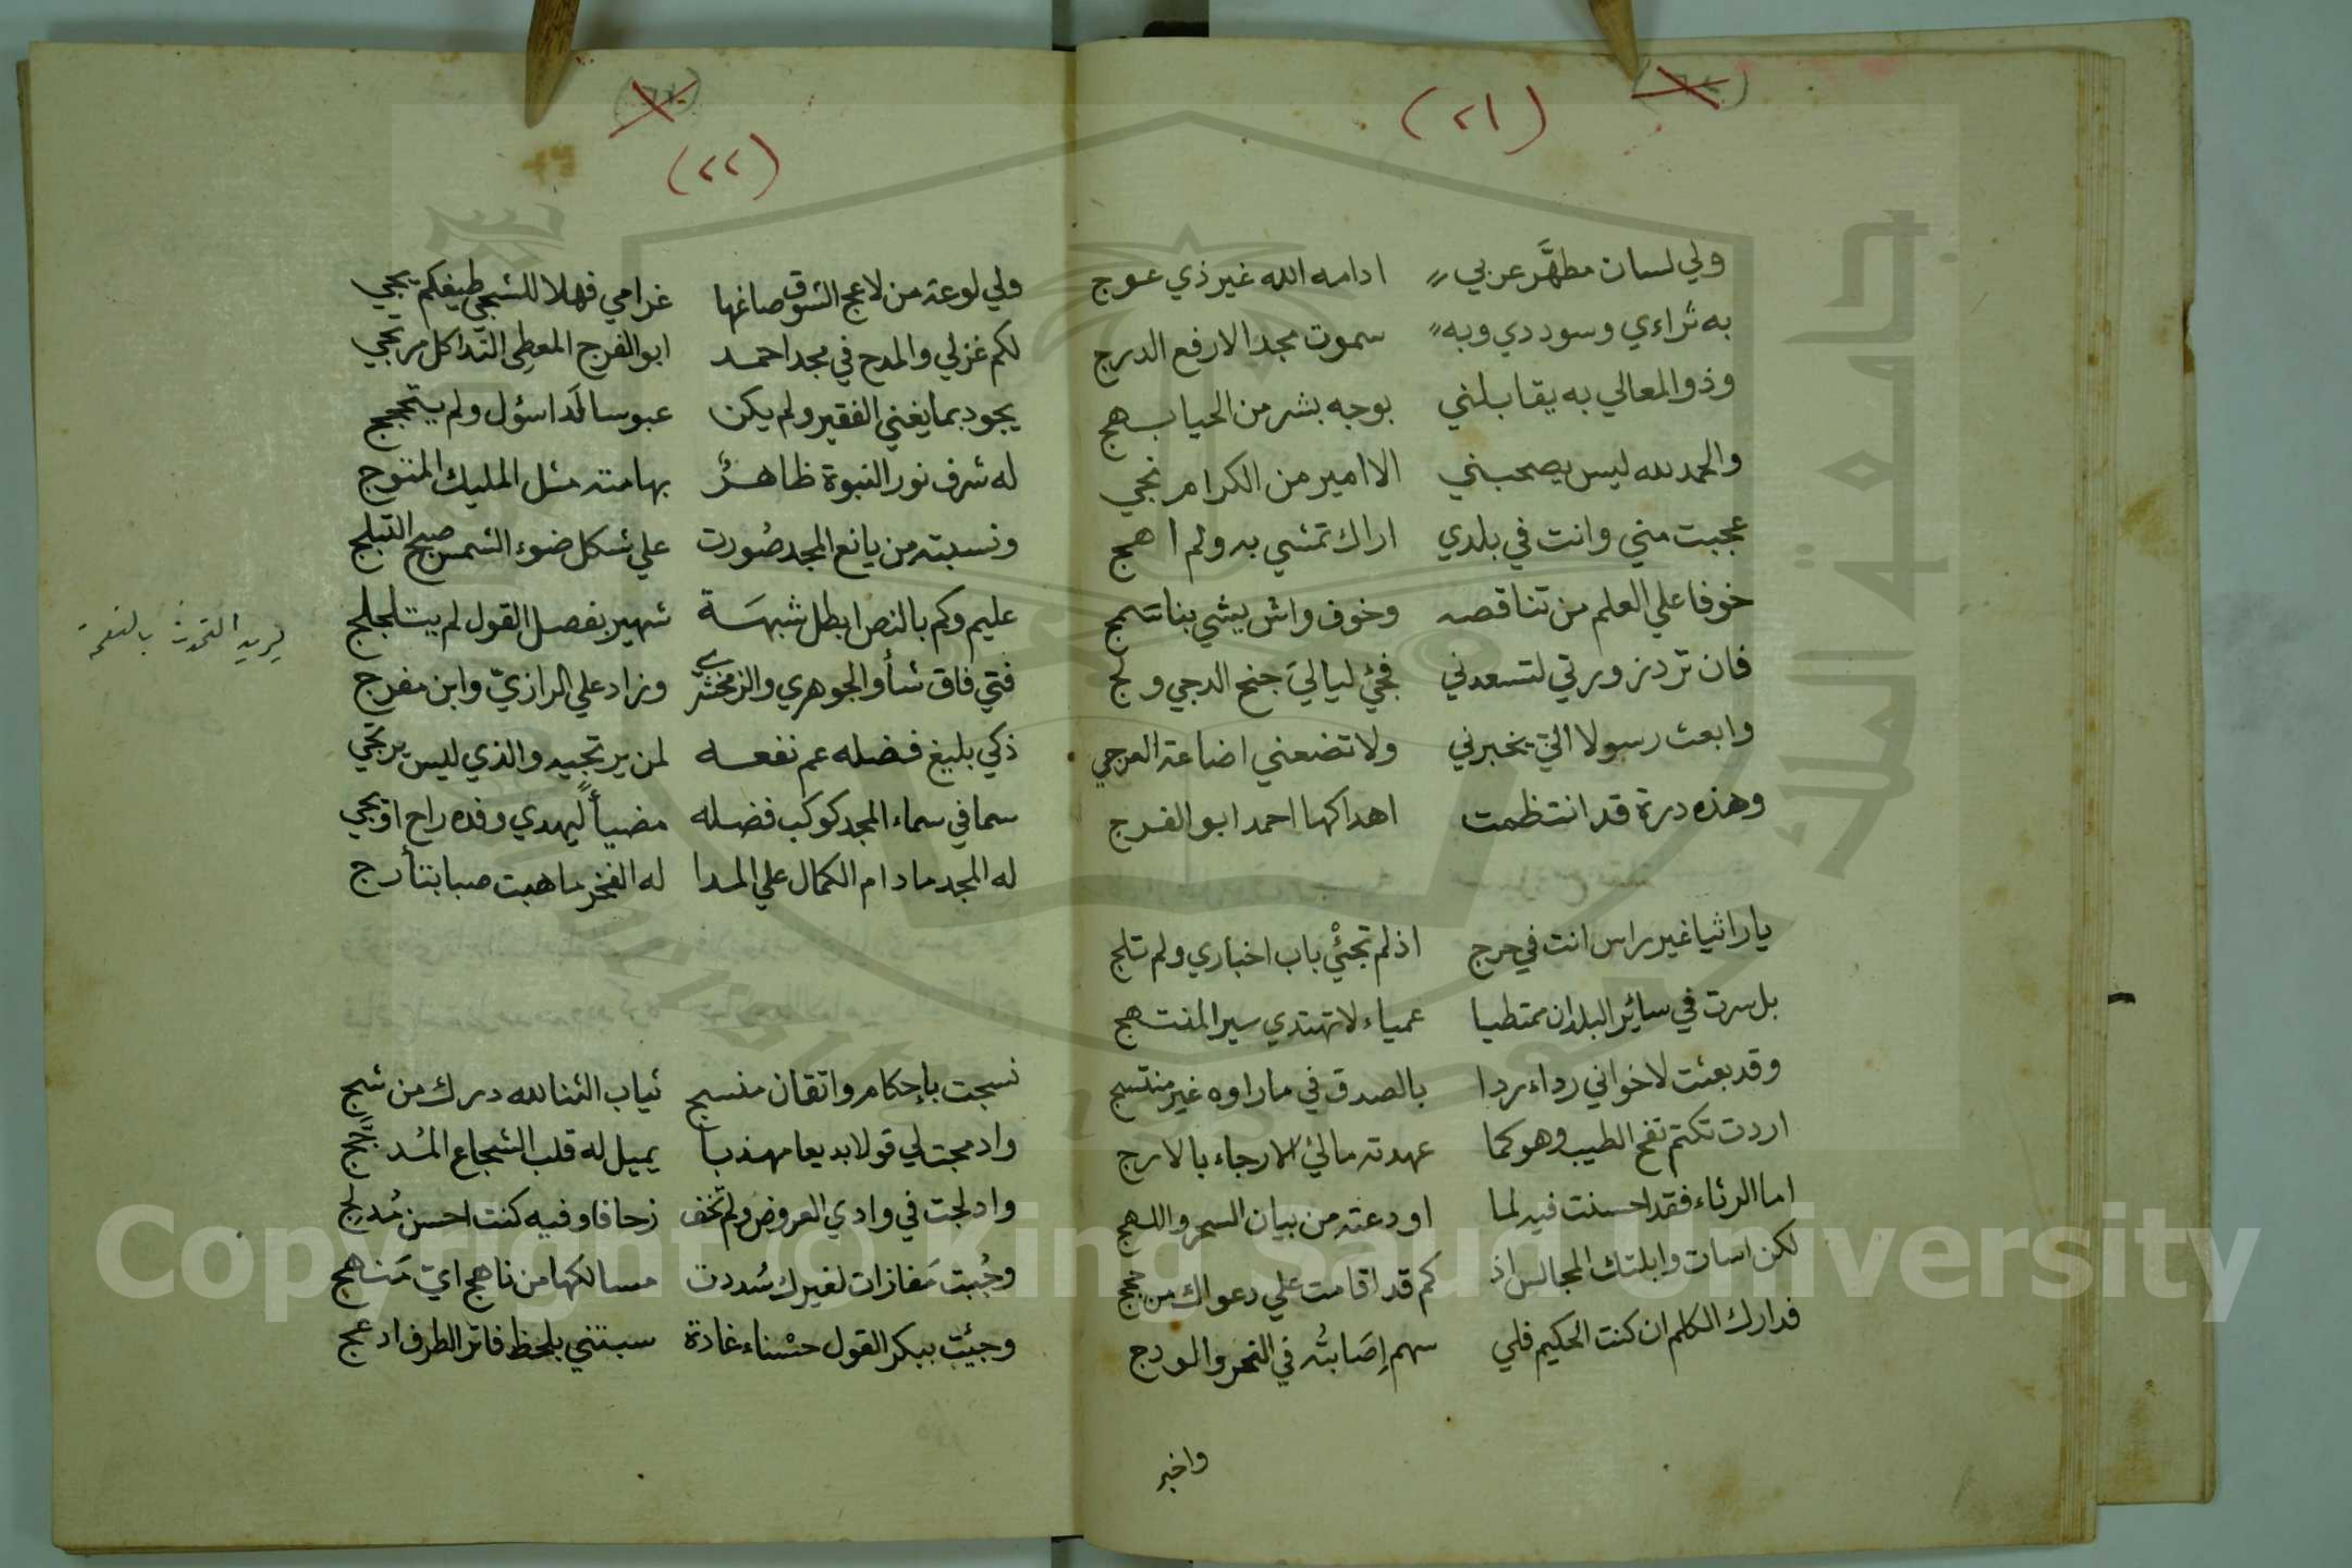 (٢١)
ولي لسان مطهَّر عربي ادامه الله غير ذي عوج
به ثراءي وسوددي وبه سموت مجد الارفع الدرج
وذو المعالي به يقابلني بوجه بشر من الحيا بهج
والحمد لله ليس يصحبني الا امير من الكرام نجي
عجبت مني وانت في بلدي اراك تمشي به ولم اهج
خوفا علي العلم من تناقصه وخوف واش يشي بنا سمج
فان ترد زورتي لتسعدني فجئ ليالي جنح الدجي ولج
وابعث رسولا الي يخبرني ولا تضعني اضاعة العرجي
وهذه درة قد انتظمت اهداكها احمد ابو الفرج
يا راثيا غير راس انت في حرج اذ لم تجئ باب اخباري ولم تلج
بل سرت في سائر البلدان ممتطيا عمياء لا تهتدي سير المنتهج
وقد بعثت لاخواني رداء ردا بالصدق في ما راوه غير منتسج
اردت تكتم نفح الطيب وهو كما عهدته مالئ الارجاء بالارج
اما الرثاء فقد احسنت فيه لما اودعته من بيان السحر واللهج
لكن اسات وابلتك المجالس اذ كم قد اقامت علي دعواك من حجج
فدارك الكلم ان كنت الحكيم فلي سهم إصَابتُه في النحر والودج
واخبر
(٢٢)
ولي لوعة من لاعج الشوق صاغها غرامي فهلا للشجي طيفكم يجي
لكم غزلي والمدح في مجد احمد ابو الفرج المعطي الندا كل مرتجي
يجود بما يغني الفقير ولم يكن عبوسا لدا سؤل ولم يتحجج
له شرف نور النبوة ظاهرٌ بهامته مثل المليك المتوج
ونسبته من يانع المجد صُورت علي شكل ضوء الشمس صبح التبلج
عليم وكم بالنص ابطل شبهَة شهير بفصل القول لم يتلجلج
فتي فاق شأو الجوهري والزمخشري وزاد علي الرازيّ وابن مفرج
ذكي بليغ فضله عم نفعه لمن يرتجيه والذي ليس يرتجي
سما في سماء المجد كوكب فضله مضيأً ليهدي وفده راح او يجي
له المجد ما دام الكمال علي المدا له الفخر ما هبت صبا بتأرج
يريد التحدث بالنعمة
نسجت بإحكام واتقان منسج ثياب الثنا لله درك من شج
وادمجت لي قولا بديعا مهذبا يميل له قلب الشجاع المُدجّج
وادلجت في وادي العروض ولم تخف زحافا وفيه كنت احسن مُدلِج
وجُبت مَفازات لغيرك سُددت مسالكها من ناهج ايّ مَنهج
وجئت ببكر القول حسْناء غادة سبتني بلحظ فاتر الطرف ادعج
Copyright © King Saud University